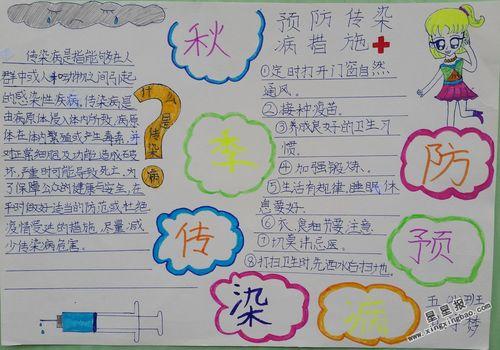 传染病是指能够在人
群中或人和动物之间引起
的感染性疾病,传染病是
由病原体侵入体内所致,病原
体在体内繁殖或产生毒素,并
对正常细胞及功能造成破
坏,严重时可能导致死亡,为
了保障公众的健康与安全,在
平时做好适当的防范或杜绝
疫情受达的措施,尽量减
少传染病危害。
什么是传染病
秋
季
传
染
病
预
防
预防传染
病措施
①定时打开门窗自然
通风。
②接种疫苗.
③养成良好的卫生习
惯.
④加强锻炼.
⑤生活有规律,睡眠休
息要好.
⑥衣、食细节要注意
⑦切莫讳忌医.
⑧打扫卫生时,先洒水后扫地.
班
梦
星星报
www.xingxingbao.com